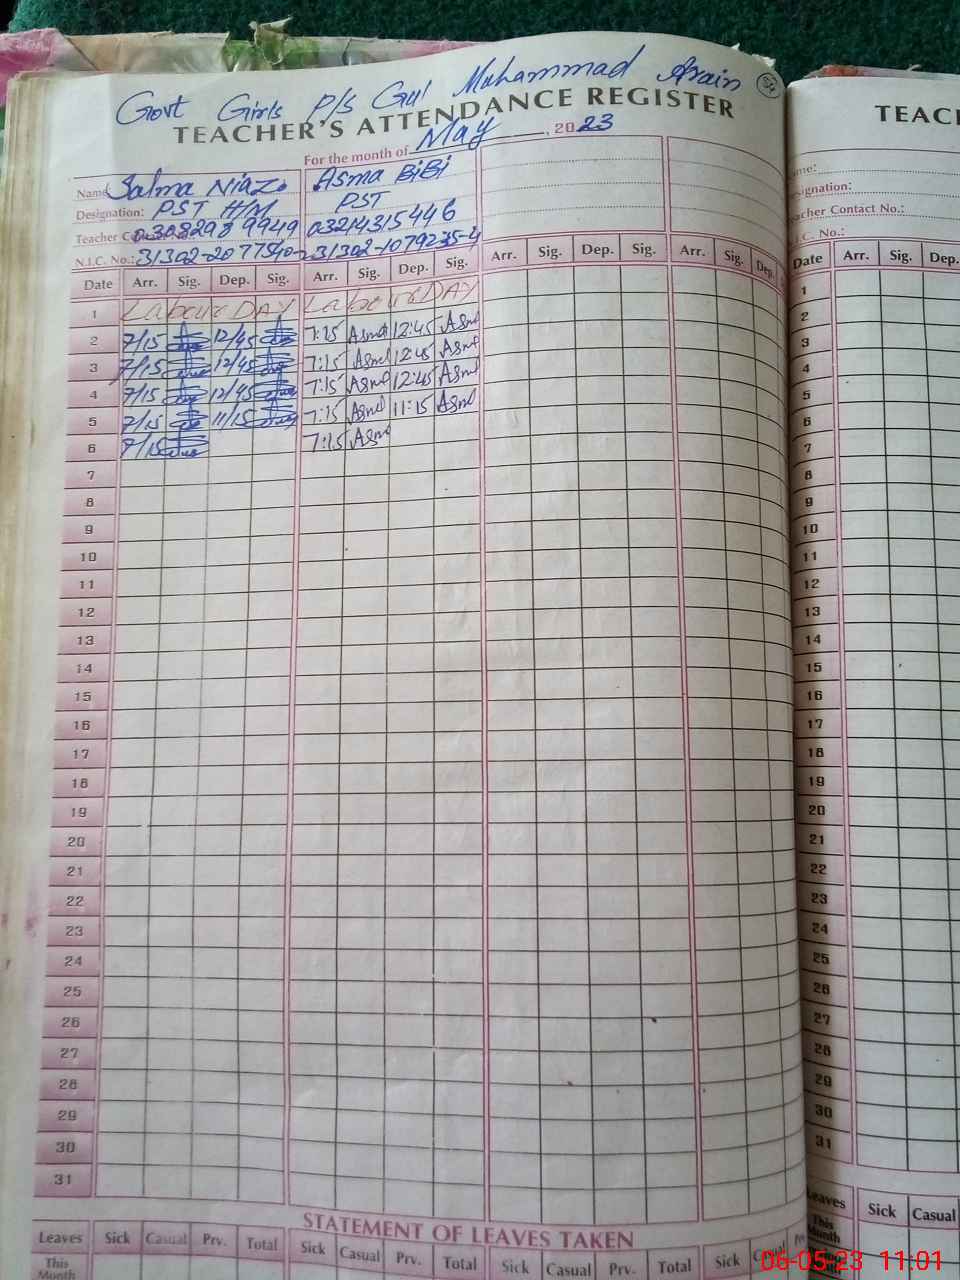 Govt Girls P/S Gul Muhammad Arain 57
TEACHER'S ATTENDANCE REGISTER
For the month of May, 2023
Name Salma Niaz. Asma BiBi
Designation: PST H/M PST
Teacher Co 03214315446
N.I.C. No.:
Date Arr. Sig. Dep. Sig. Arr. Sig. Dep. Sig. Arr. Sig. Dep. Sig. Arr. Sig. Dep.
1 Labour DAY Labour DAY
2 7/15 12/45 7:15 Asma 12:45 Asma
3 7/15 12/45 7:15 Asma 12:45 Asma
4 7/15 12/45 7:15 Asma 12:45 Asma
5 7/15 11/15 7:15 Asma 11:15 Asma
6 7/15 7:15 Asma
7
8
9
10
11
12
13
14
15
16
17
18
19
20
21
22
23
24
25
26
27
28
29
30
31
STATEMENT OF LEAVES TAKEN
Leaves Sick Casual Prv. Total Sick Casual Prv. Total Sick Casual Prv. Total Sick Casual
This Month
TEACH
me:
signation:
eacher Contact No.:
I.C. No.:
Date Arr. Sig. Dep.
1
2
3
4
5
6
7
8
9
10
11
12
13
14
15
16
17
18
19
20
21
22
23
24
25
26
27
28
29
30
31
Leaves Sick Casual
This Month
06-05-23 11:01